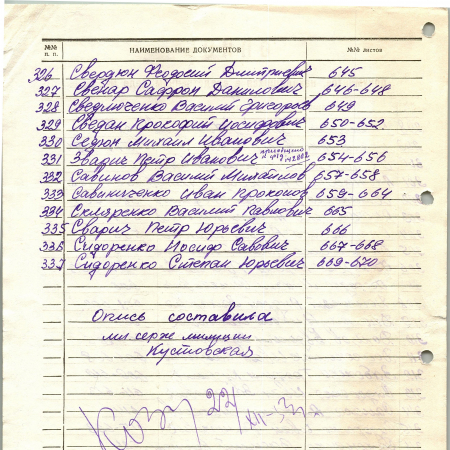 №№ п. п. НАИМЕНОВАНИЕ ДОКУМЕНТОВ №№ листов
326 Свердюн Феодосий Дмитриевич 645
327 Свенар Сафрон Данилович 646-648
328 Василий Григоров 649
329 Сведан Прокофий Иосифович 650-652
330 Седюн Михаил Иванович 653
331 Зварич Петр Иванович 654-656
332 Савинов Василий 657-658
333 Савониченко Иван Прокопов 659-664
334 Скляренко Василий Павлович 665
335 Сварич Петр Юрьевич 666
336 Сидоренко Иосиф Савович 667-668
337 Сидоренко Степан Юрьевич 669-670
Опись составила
мл серж милиции
Кустовская
22/XII-